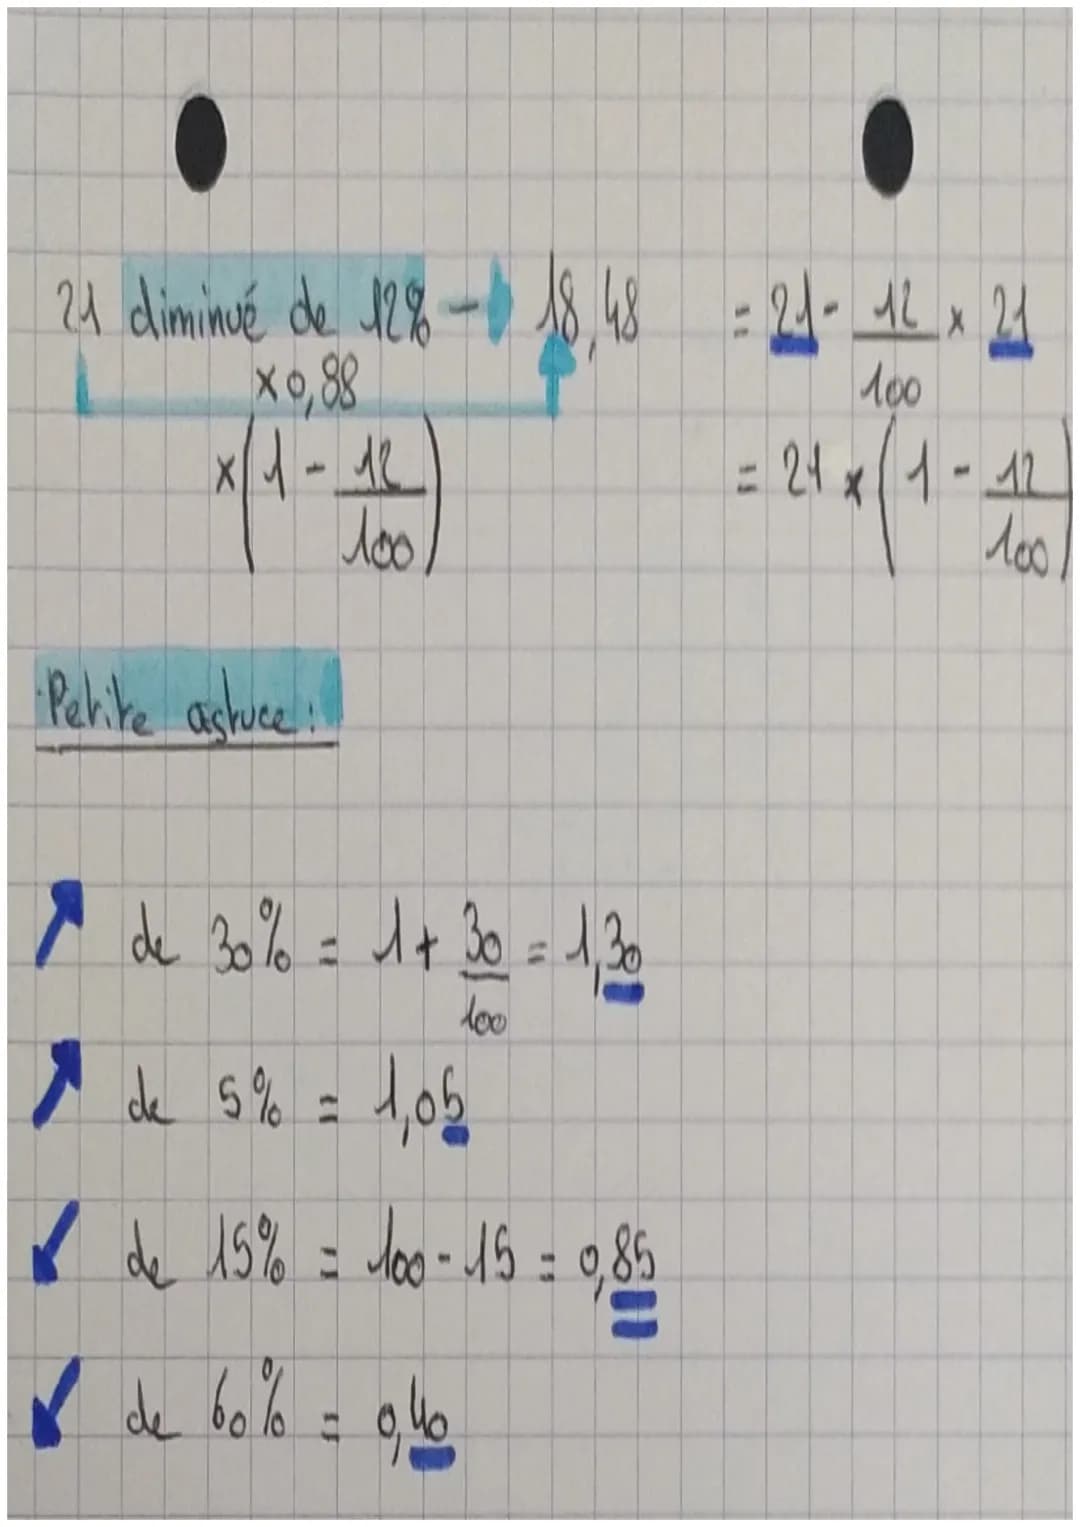 21 diminué de 12% → 18,48 = 21 - 12/100 × 21
×0,88
×(1 - 12/100) = 21 × (1 - 12/100)
Petite astuce :
↗ de 30% = 1 + 30/100 = 1,30
↗ de 5% = 1,05
↙ de 15% = 100 - 15 = 0,85
↙ de 60% = 0,40